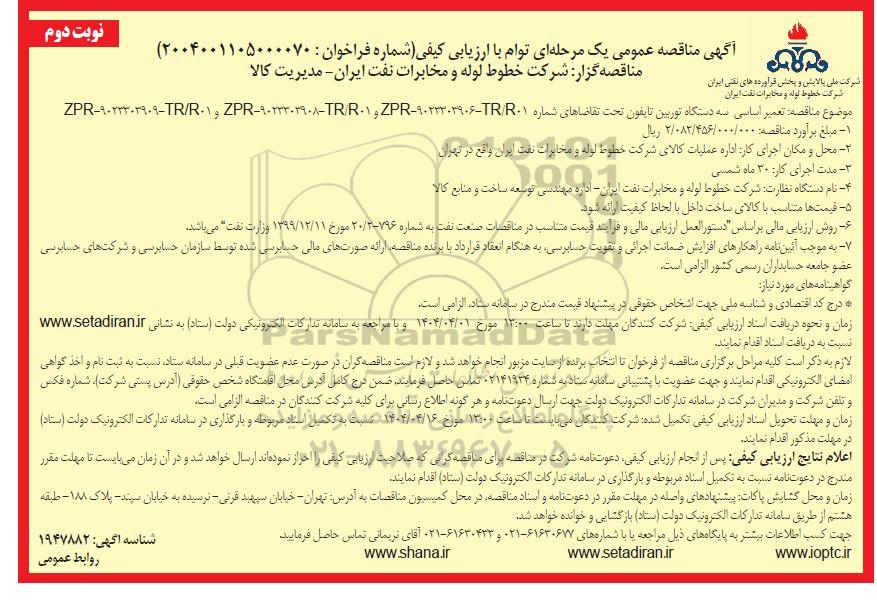 نوبت دوم
آگهی مناقصه عمومی یک مرحله‌ای توام با ارزیابی کیفی(شماره فراخوان : ۲۰۰۴۰۰۱۱۰۵۰۰۰۰۷۰)
مناقصه‌گزار: شرکت خطوط لوله و مخابرات نفت ایران- مدیریت کالا
شرکت ملی پالایش و پخش فرآورده های نفتی ایران
شرکت خطوط لوله و مخابرات نفت ایران
موضوع مناقصه: تعمیر اساسی سه دستگاه توربین تایفون تحت تقاضاهای شماره ZPR-۹۰۲۳۳۰۳۹۰۶-TR/R۰۱ و ZPR-۹۰۲۳۳۰۳۹۰۸-TR/R۰۱ و ZPR-۹۰۲۳۳۰۳۹۰۹-TR/R۰۱
۱- مبلغ برآورد مناقصه: ۲/۰۸۲/۴۵۶/۰۰۰/۰۰۰ ریال
۲- محل و مکان اجرای کار: اداره عملیات کالای شرکت خطوط لوله و مخابرات نفت ایران واقع در تهران
۳- مدت اجرای کار: ۳۰ ماه شمسی
۴- نام دستگاه نظارت: شرکت خطوط لوله و مخابرات نفت ایران- اداره مهندسی توسعه ساخت و منابع کالا
۵- قیمت‌ها متناسب با کالای ساخت داخل با لحاظ کیفیت ارائه شود.
۶- روش ارزیابی مالی براساس"دستورالعمل ارزیابی مالی و فرآیند قیمت متناسب در مناقصات صنعت نفت به شماره ۷۹۶-۲۰/۲ مورخ ۱۳۹۹/۱۲/۱۱ وزارت نفت" می‌باشد.
۷- به موجب آئین‌نامه راهکارهای افزایش ضمانت اجرائی و تقویت حسابرسی، به هنگام انعقاد قرارداد با برنده مناقصه، ارائه صورت‌های مالی حسابرسی شده توسط سازمان حسابرسی و شرکت‌های حسابرسی
عضو جامعه حسابداران رسمی کشور الزامی است.
گواهینامه‌های مورد نیاز:
* درج کد اقتصادی و شناسه ملی جهت اشخاص حقوقی در پیشنهاد قیمت مندرج در سامانه ستاد، الزامی است.
زمان و نحوه دریافت اسناد ارزیابی کیفی: شرکت کنندگان مهلت دارند تا ساعت ۱۳:۰۰ مورخ ۱۴۰۴/۰۴/۰۱ و با مراجعه به سامانه تدارکات الکترونیکی دولت (ستاد) به نشانی www.setadiran.ir
نسبت به دریافت اسناد اقدام نمایند.
لازم به ذکر است کلیه مراحل برگزاری مناقصه از فرخوان تا انتخاب برنده از سایت مزبور انجام خواهد شد و لازم است مناقصه‌گران در صورت عدم عضویت قبلی در سامانه ستاد، نسبت به ثبت نام و اخذ گواهی
امضای الکترونیکی اقدام نمایند و جهت عضویت با پشتیبانی سامانه ستاد به شماره ۰۲۱۴۱۹۳۴ تماس حاصل فرمایند. ضمن درج کامل آدرس محل اقامتگاه شخص حقوقی (آدرس پستی شرکت)، شماره فکس
و تلفن شرکت و مدیران شرکت در سامانه تدارکات الکترونیک دولت جهت ارسال دعوت‌نامه و هر گونه اطلاع رسانی برای کلیه شرکت کنندگان در مناقصه الزامی است.
زمان و مهلت تحویل اسناد ارزیابی کیفی تکمیل شده: شرکت کنندگان می‌بایست تا ساعت ۱۳:۰۰ مورخ ۱۴۰۴/۰۴/۱۶ نسبت به تکمیل اسناد مربوطه و بارگذاری در سامانه تدارکات الکترونیک دولت (ستاد)
در مهلت مذکور اقدام نمایند.
اعلام نتایج ارزیابی کیفی: پس از انجام ارزیابی کیفی، دعوت‌نامه شرکت در مناقصه برای مناقصه‌گرانی که صلاحیت ارزیابی کیفی را احراز نموده‌اند ارسال خواهد شد و در آن زمان می‌بایست تا مهلت مقرر
مندرج در دعوت‌نامه نسبت به تکمیل اسناد مربوطه و بارگذاری در سامانه تدارکات الکترونیک دولت (ستاد) اقدام نمایند.
زمان و محل گشایش پاکات: پیشنهادهای واصله در مهلت مقرر در دعوت‌نامه و اسناد مناقصه، در محل کمیسیون مناقصات به آدرس: تهران- خیابان سپهبد قرنی- نرسیده به خیابان سپند- پلاک ۱۸۸- طبقه
هشتم از طریق سامانه تدارکات الکترونیک دولت (ستاد) بازگشایی و خوانده خواهد شد.
جهت کسب اطلاعات بیشتر به پایگاه‌های ذیل مراجعه یا با شماره‌های ۶۱۶۳۰۶۷۷-۰۲۱ و ۶۱۶۳۰۴۳۳-۰۲۱ آقای نریمانی تماس حاصل فرمایید.
www.ioptc.ir www.setadiran.ir www.shana.ir
شناسه آگهی: ۱۹۴۷۸۸۲
روابط عمومی
ParsNamadData
۰۲۱-۸۸۳۴۹۶۷۰-۵